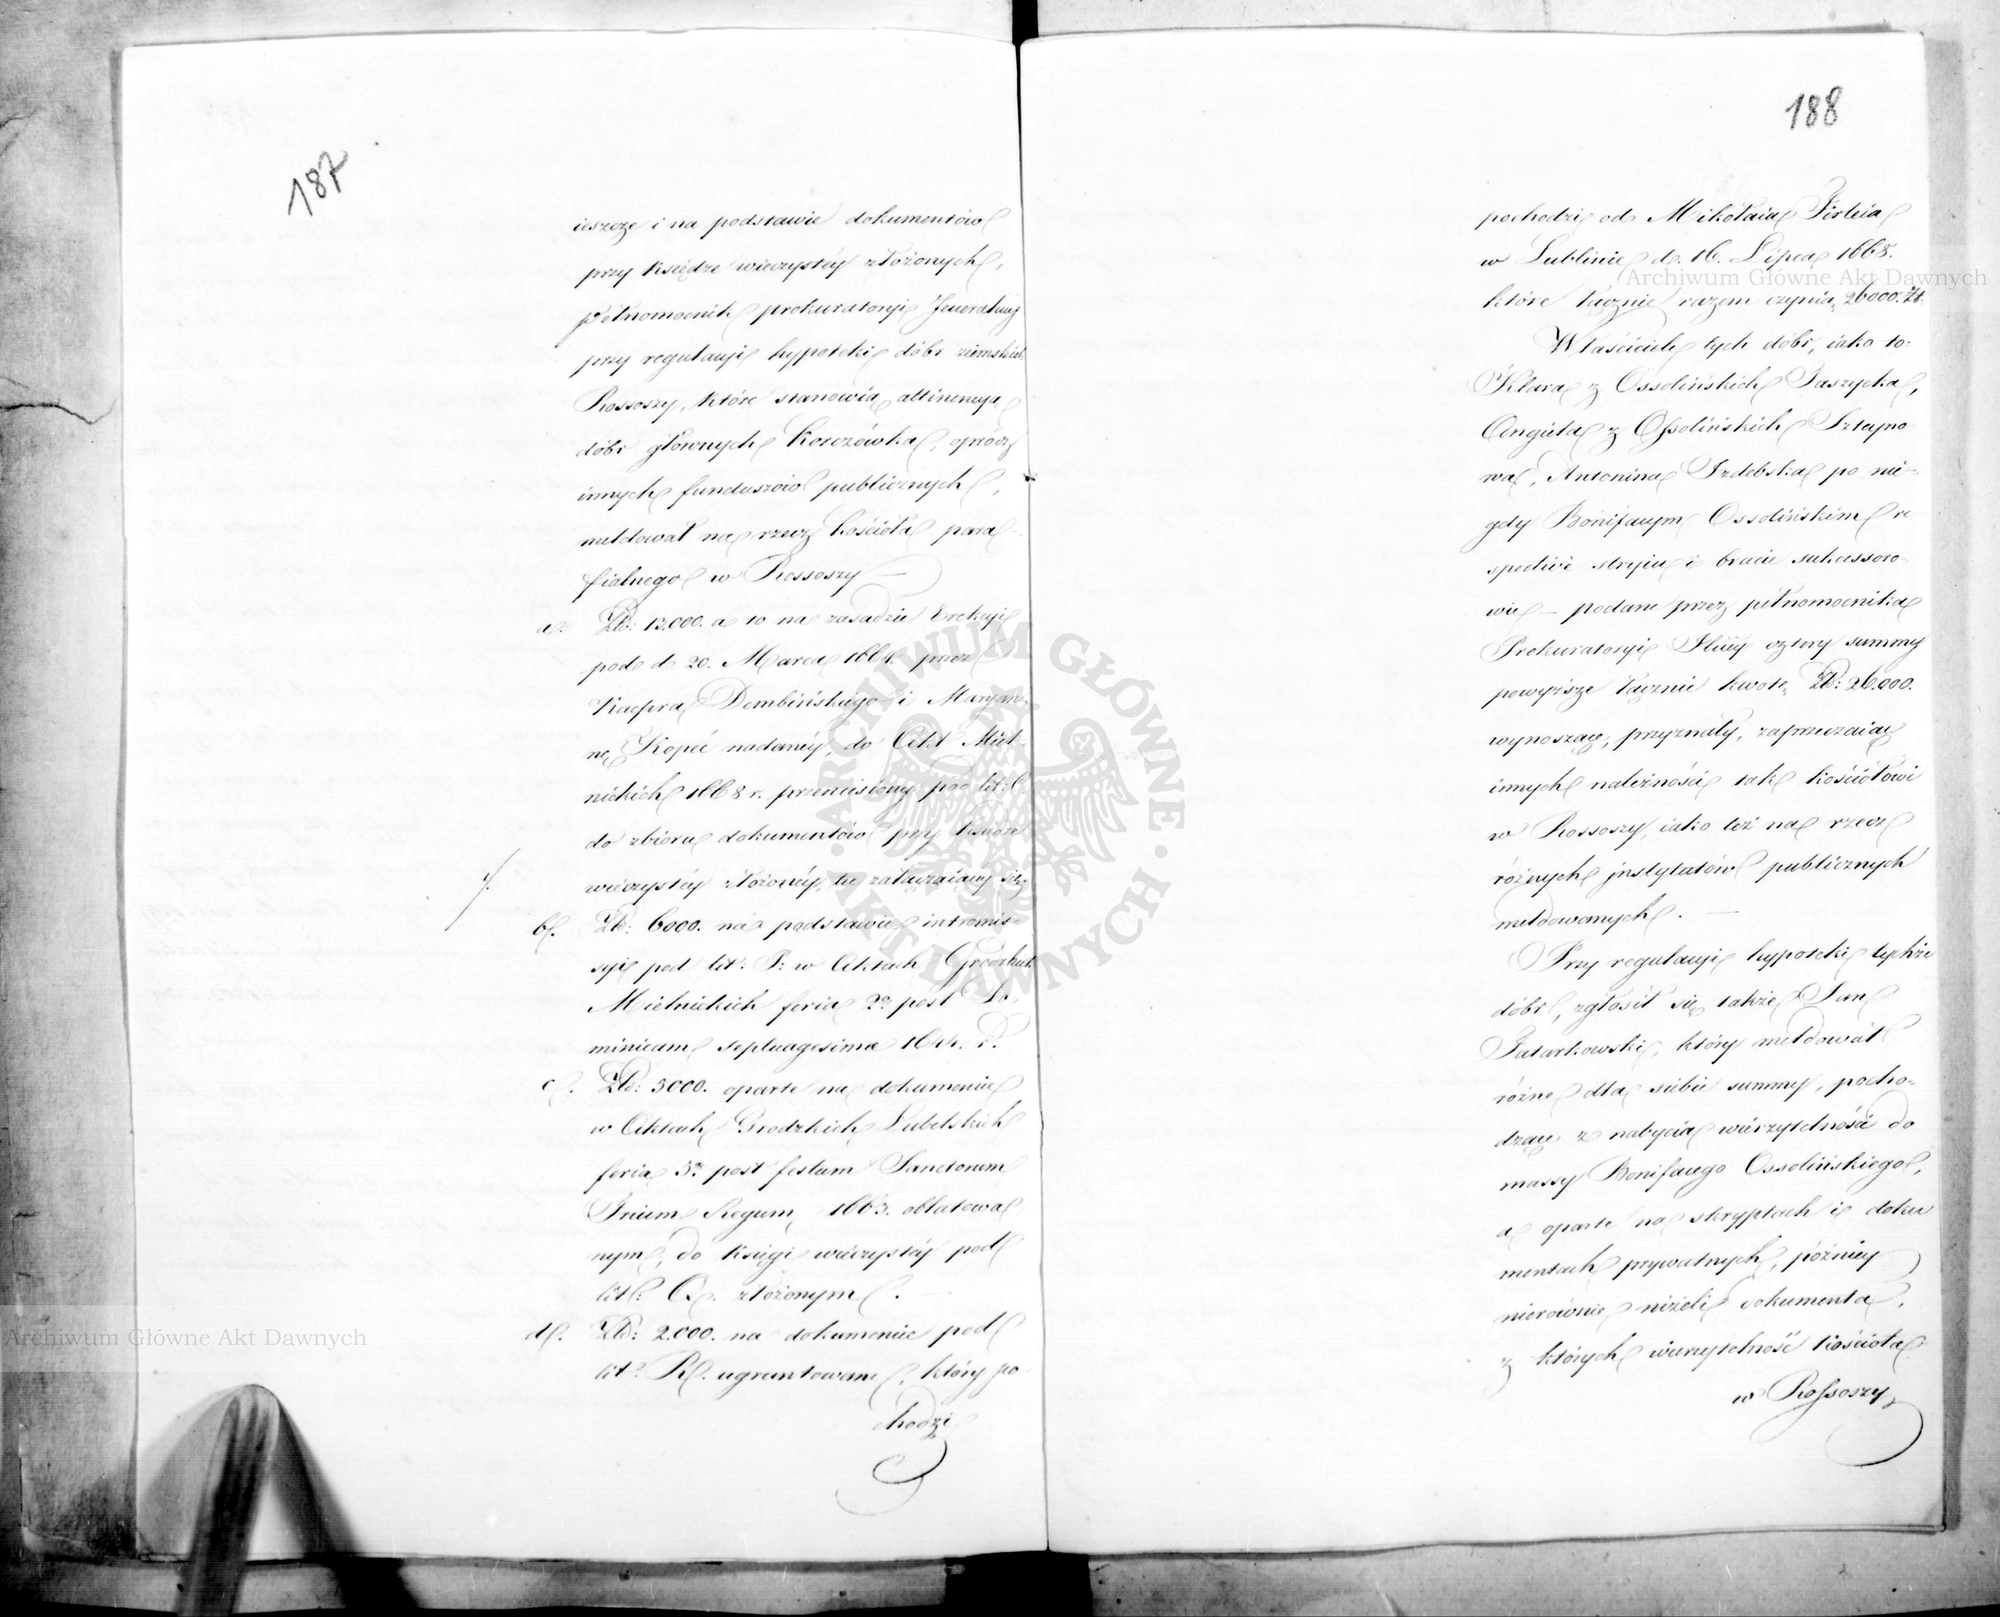 187
ieszcze i na podstawie dokumentów
przy księdze wieczystéy złożonych,
pełnomocnik prokuratoryi Jeneralnéj
przy regulacyi hypoteki dóbr ziemskich
Rossoszy, które stanowią attinencyą
dóbr głównych Korczówka, oprócz
innych funduszów publicznych,
meldował na rzecz kościoła para-
fialnego w Rossoszy —
a. Złł: 13.000. a to na zasadzie Erekcyi
pod d. 20. Marca 1664. przez
Kacpra Dembińskiego i Maryan-
nę Kopeć nadanéy, do Akt Miel-
nickich 1668 r. przeniesioney pod lit: O.
do zbioru dokumentów przy księdze
wieczystéy złożonéy, tu załączaiącéy się
b. Złł: 6000. na podstawie intromis-
syi pod lit: P: w Aktach Grodzkich
Mielnickich feria 2a post Do-
minicam septuagesima 1644. r.
c. Złł: 5000. oparte na dokumencie
w Aktach Grodzkich Lubelskich
feria 3a post festum Sanctorum
Trium Regum 1663. oblatowa
nym, do księgi wieczystéy pod
lit: Q. złożonym.
d. Złł: 2.000. na dokumencie pod
lit: R. ugruntowane, który po-
chodzi
188
pochodzi od Mikołaia Firleia
w Lublinie d. 16. Lipca 1668.
które łącznie razem czynią 26000. Zł.
Właściciele tych dóbr, iako to:
Klara z Ossolińskich Jaszycka,
Aniela z Ossolińskich Sztejno-
wa, Antonina Izdebska po nie-
gdy Bonifacym Ossolińskim re
spective stryiu i bracie sukcessoro-
wie — podane przez pełnomocnika
Prokuratoryi cztery summy
powyższe łącznie kwotę Złł: 26.000.
wynoszące, przyznały, zaprzeczaiąc
innych należności tak kościołowi
w Rossoszy, iako też na rzecz
różnych jnstytutów publicznych
meldowanych. —
Przy regulacyi hypoteki tychże
dóbr, zgłosił się także Jan
Tatarkowski, który meldował
różne dla siebie summy, pocho-
dzące z nabycia wierzytelności do
massy Bonifacego Ossolińskiego,
a oparte na skryptach i doku
mentach prywatnych, późniey
nierównie niżeli dokumenta,
z których wierzytelność kościoła
w Rossoszy
Archiwum Główne Akt Dawnych
Archiwum Główne Akt Dawnych
ARCHIWUM GŁÓWNE AKT DAWNYCH